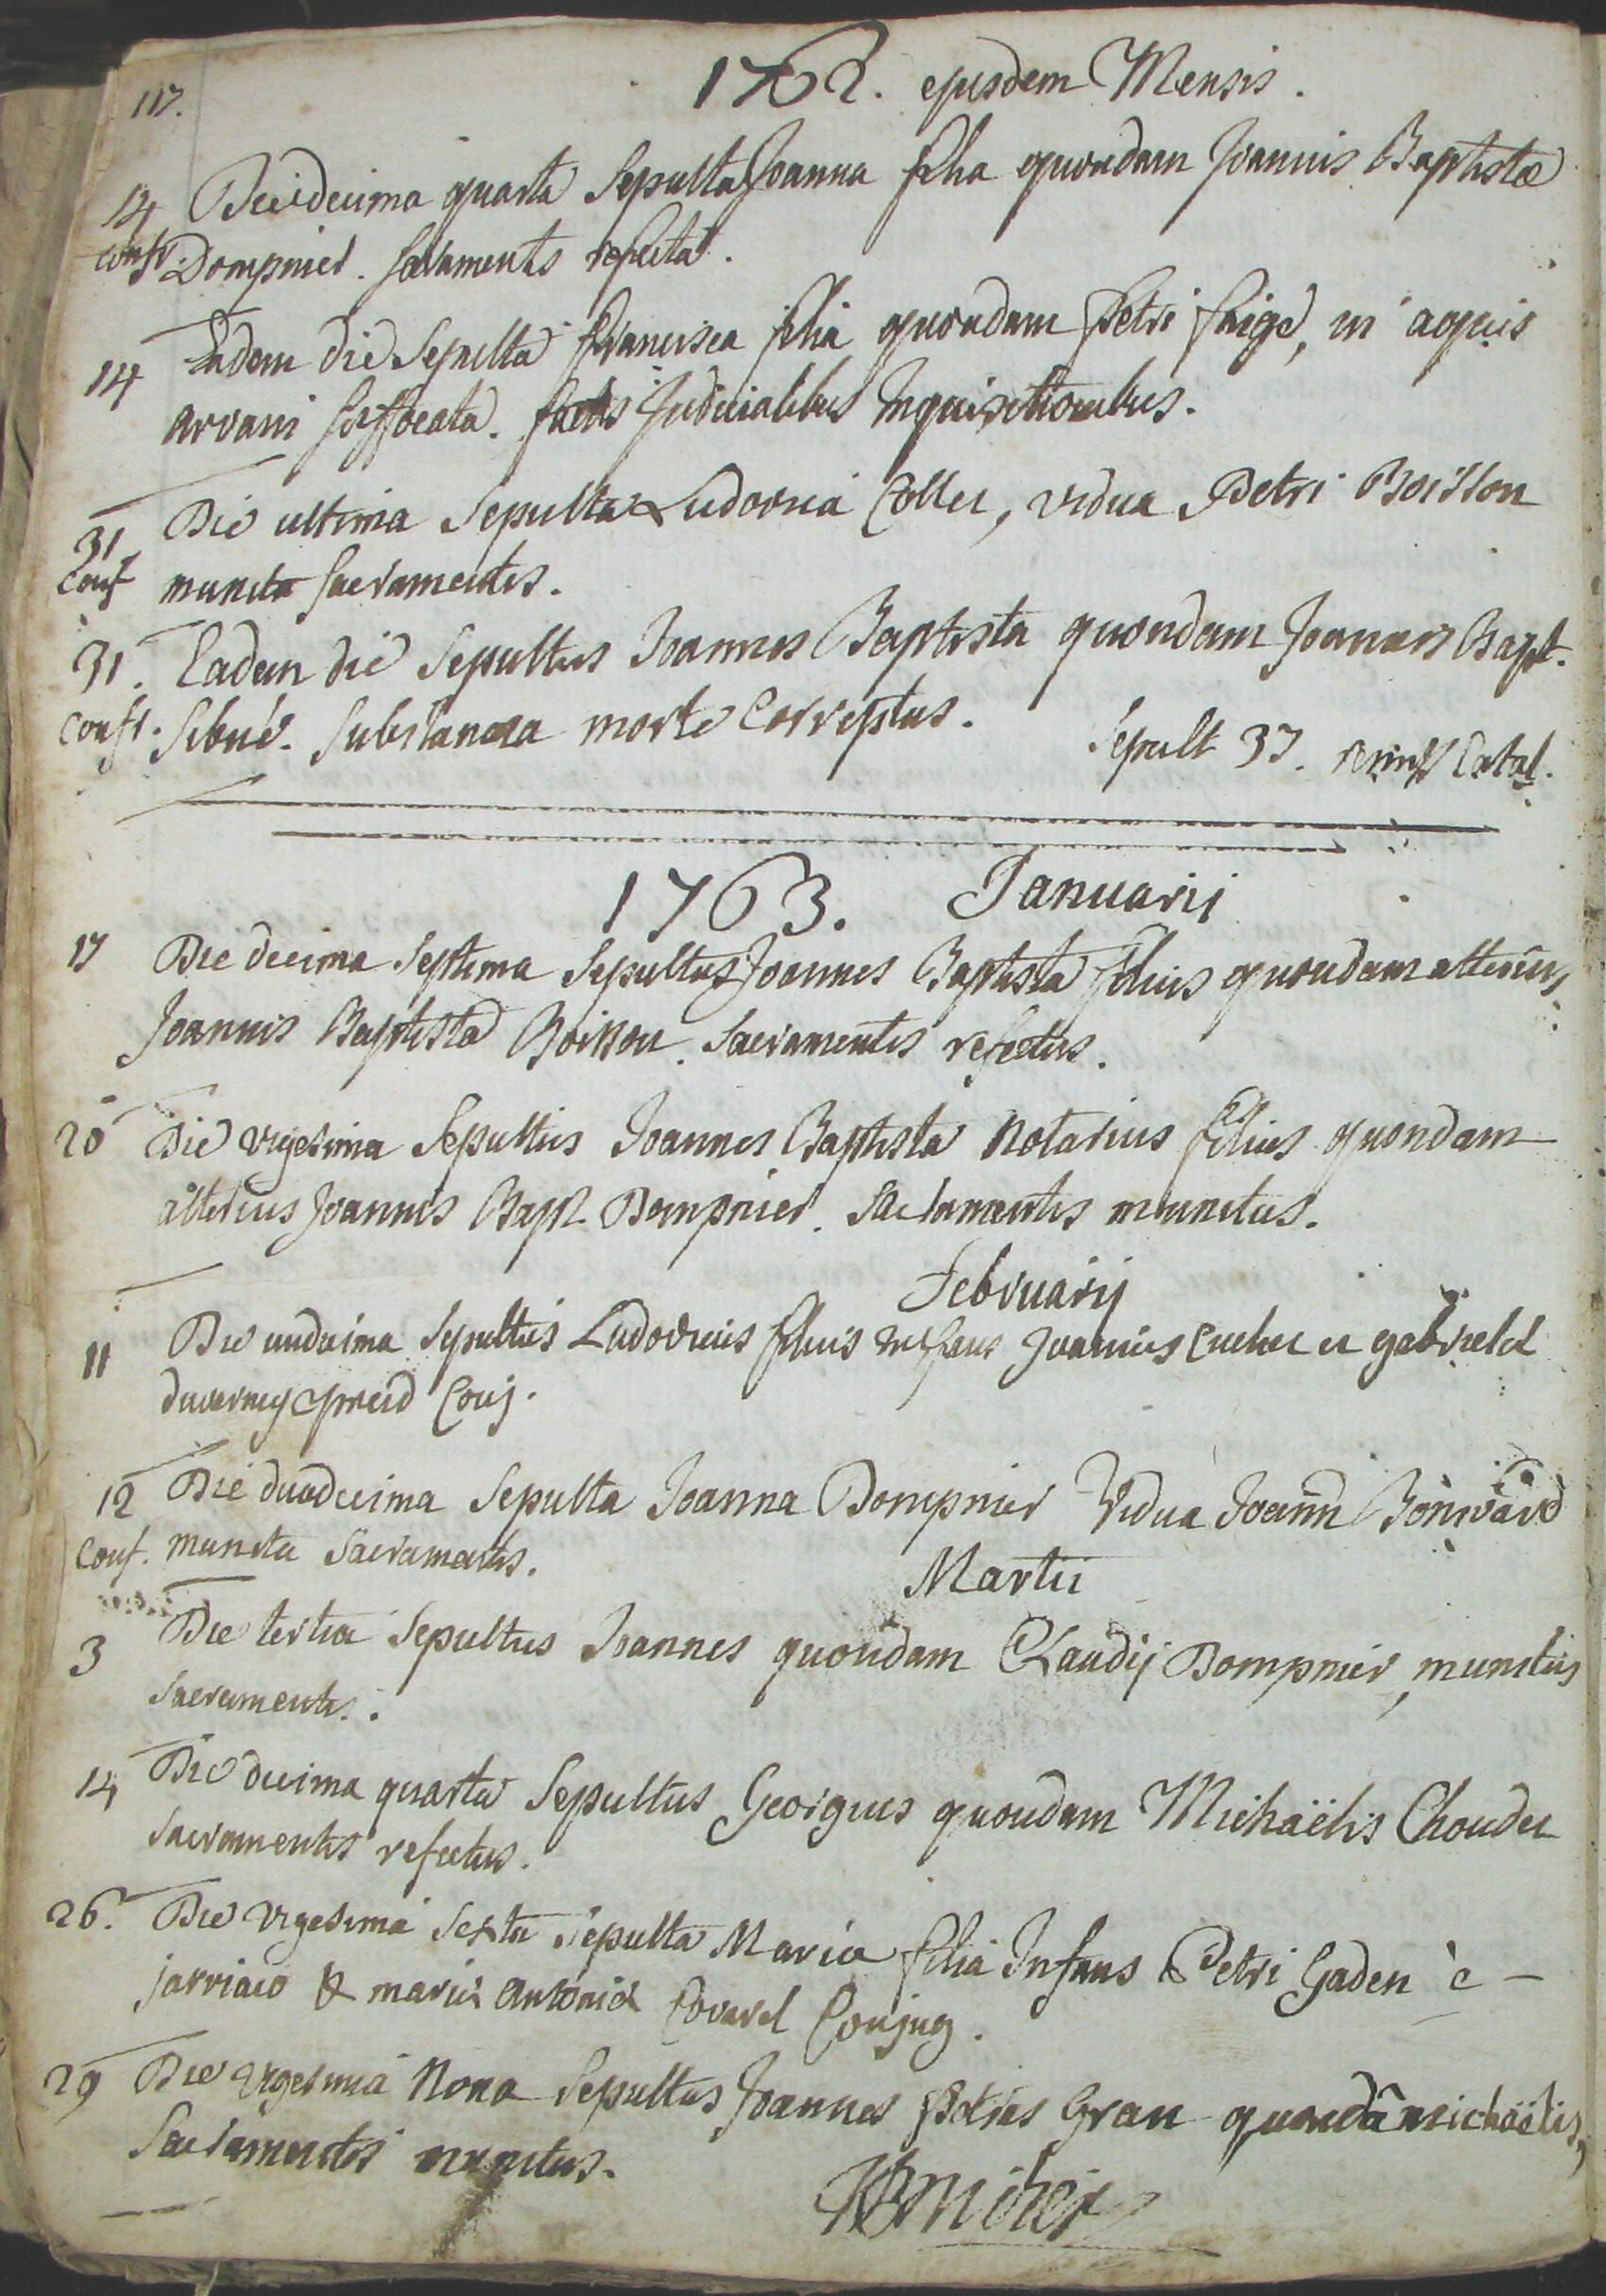 117.
1762. ejusdem Mensis.
14 Die decima quarta Sepulta Joanna filia quondam Joannis Baptistæ
confr. Dompnier. Sacramentis refecta.
14 Eadem die Sepulta francisca filia quondam Petri faige, in aquis
arvani suffocata. factis Judicialibus Inquisitionibus.
31 Die ultima Sepulta Ludovica Collet, vidua Petri Boisson
Conf munita Sacramentis.
31. Eadem die Sepultus Joannes Baptista quondam Joannis Bapt.
Confr. Sibué. Subitanea morte Correptus.
Sepult 37. Catal.
1763. Januarii
17 Die decima Septima Sepultus Joannes Baptista filius quondam alterius
Joannis Baptistæ Boisson. Sacramentis refectus.
20 Die vigesima Sepultus Joannes Baptista Notarius filius quondam
alterius Joannis Bapt. Dompnier. Sacramentis munitus.
Februarij
11 Die undecima Sepultus Ludovicus filius infans Joannis et gabrielæ
duverney Conj.
12 Die duodecima Sepulta Joanna Dompnier Vidua Joann
Conf. munita Sacramentis.
Martii
3 Die tertia Sepultus Joannes quondam Claudij Dompnier, munitus
Sacramentis.
14 Die decima quarta Sepultus Georgius quondam Michaëlis Choudet
Sacramentis refectus.
26. Die vigesima Sexta Sepulta Maria filia Infans Petri Gaden è
jarriaco & mariæ Antoniæ Covarel Conjug.
29 Die vigesima Nona Sepultus Joannes Petrus Gran quondã michaëlis,
Sacramentis munitus.